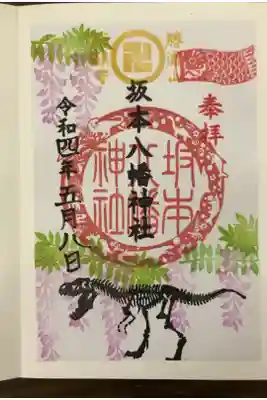 奉拝
坂本八幡神社
令和四年五月八日
坂本
八幡
神社